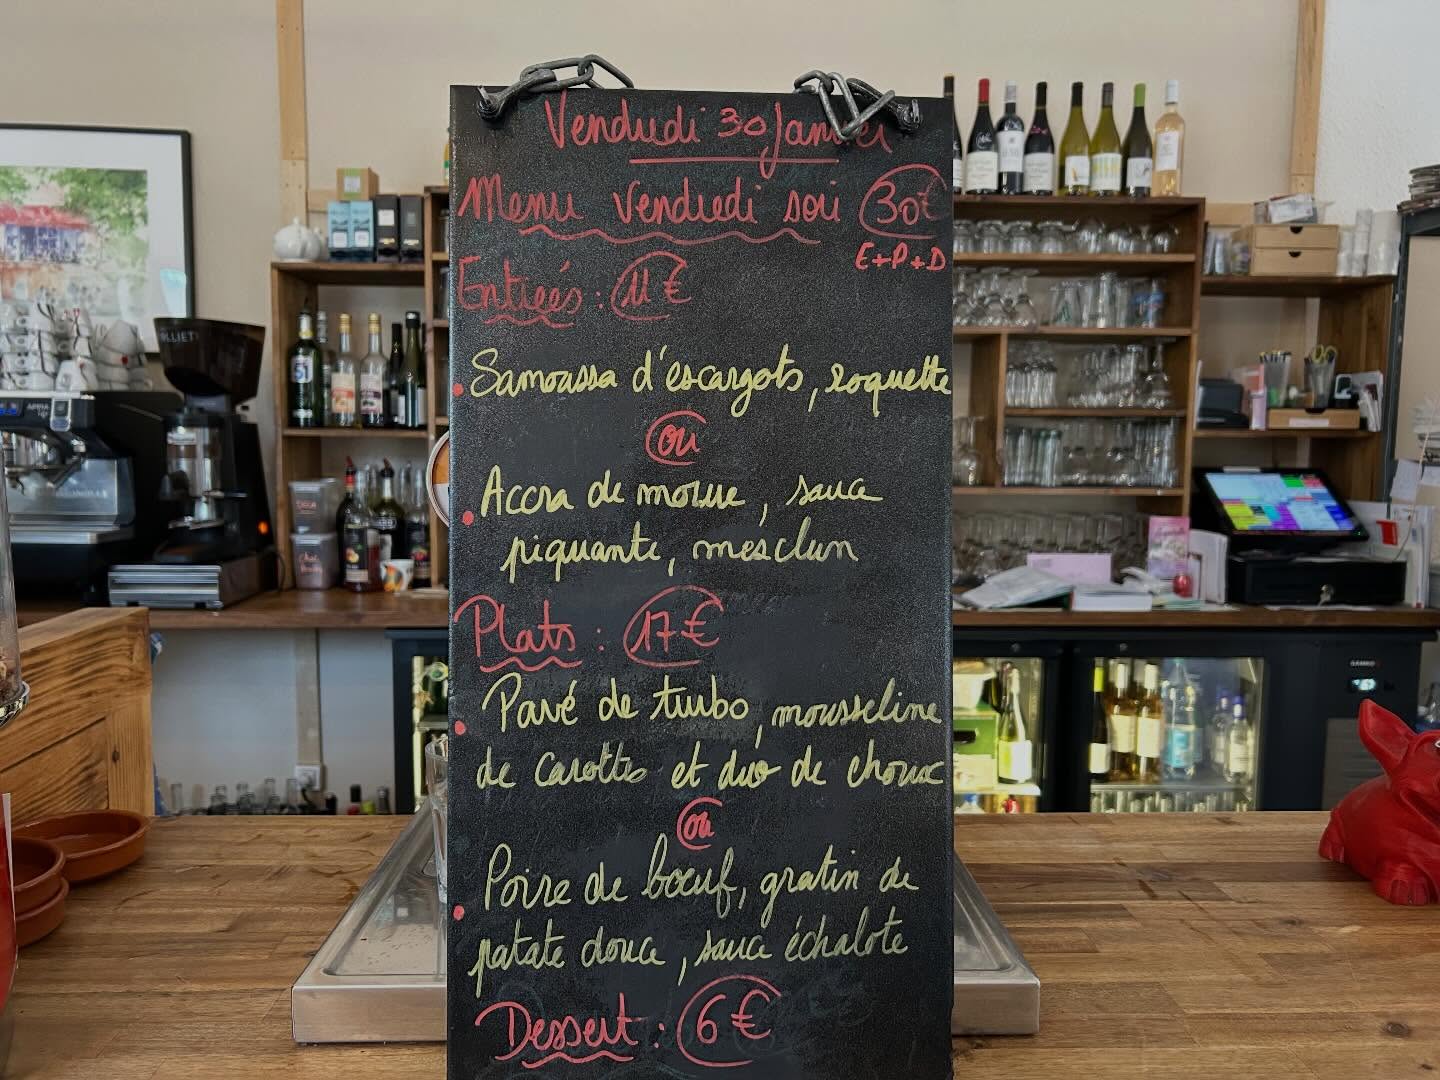 Vendredi 30 Janvier
Menu Vendredi soir 30€
E+P+D
Entrées : 11€
Samoussa d'escargots, roquette
ou
Accra de morue, sauce
piquante, mesclun
Plats : 17€
Pavé de turbo, mousseline
de carottes et duo de choux
ou
Poire de bœuf, gratin de
patate douce, sauce échalote
Dessert : 6€